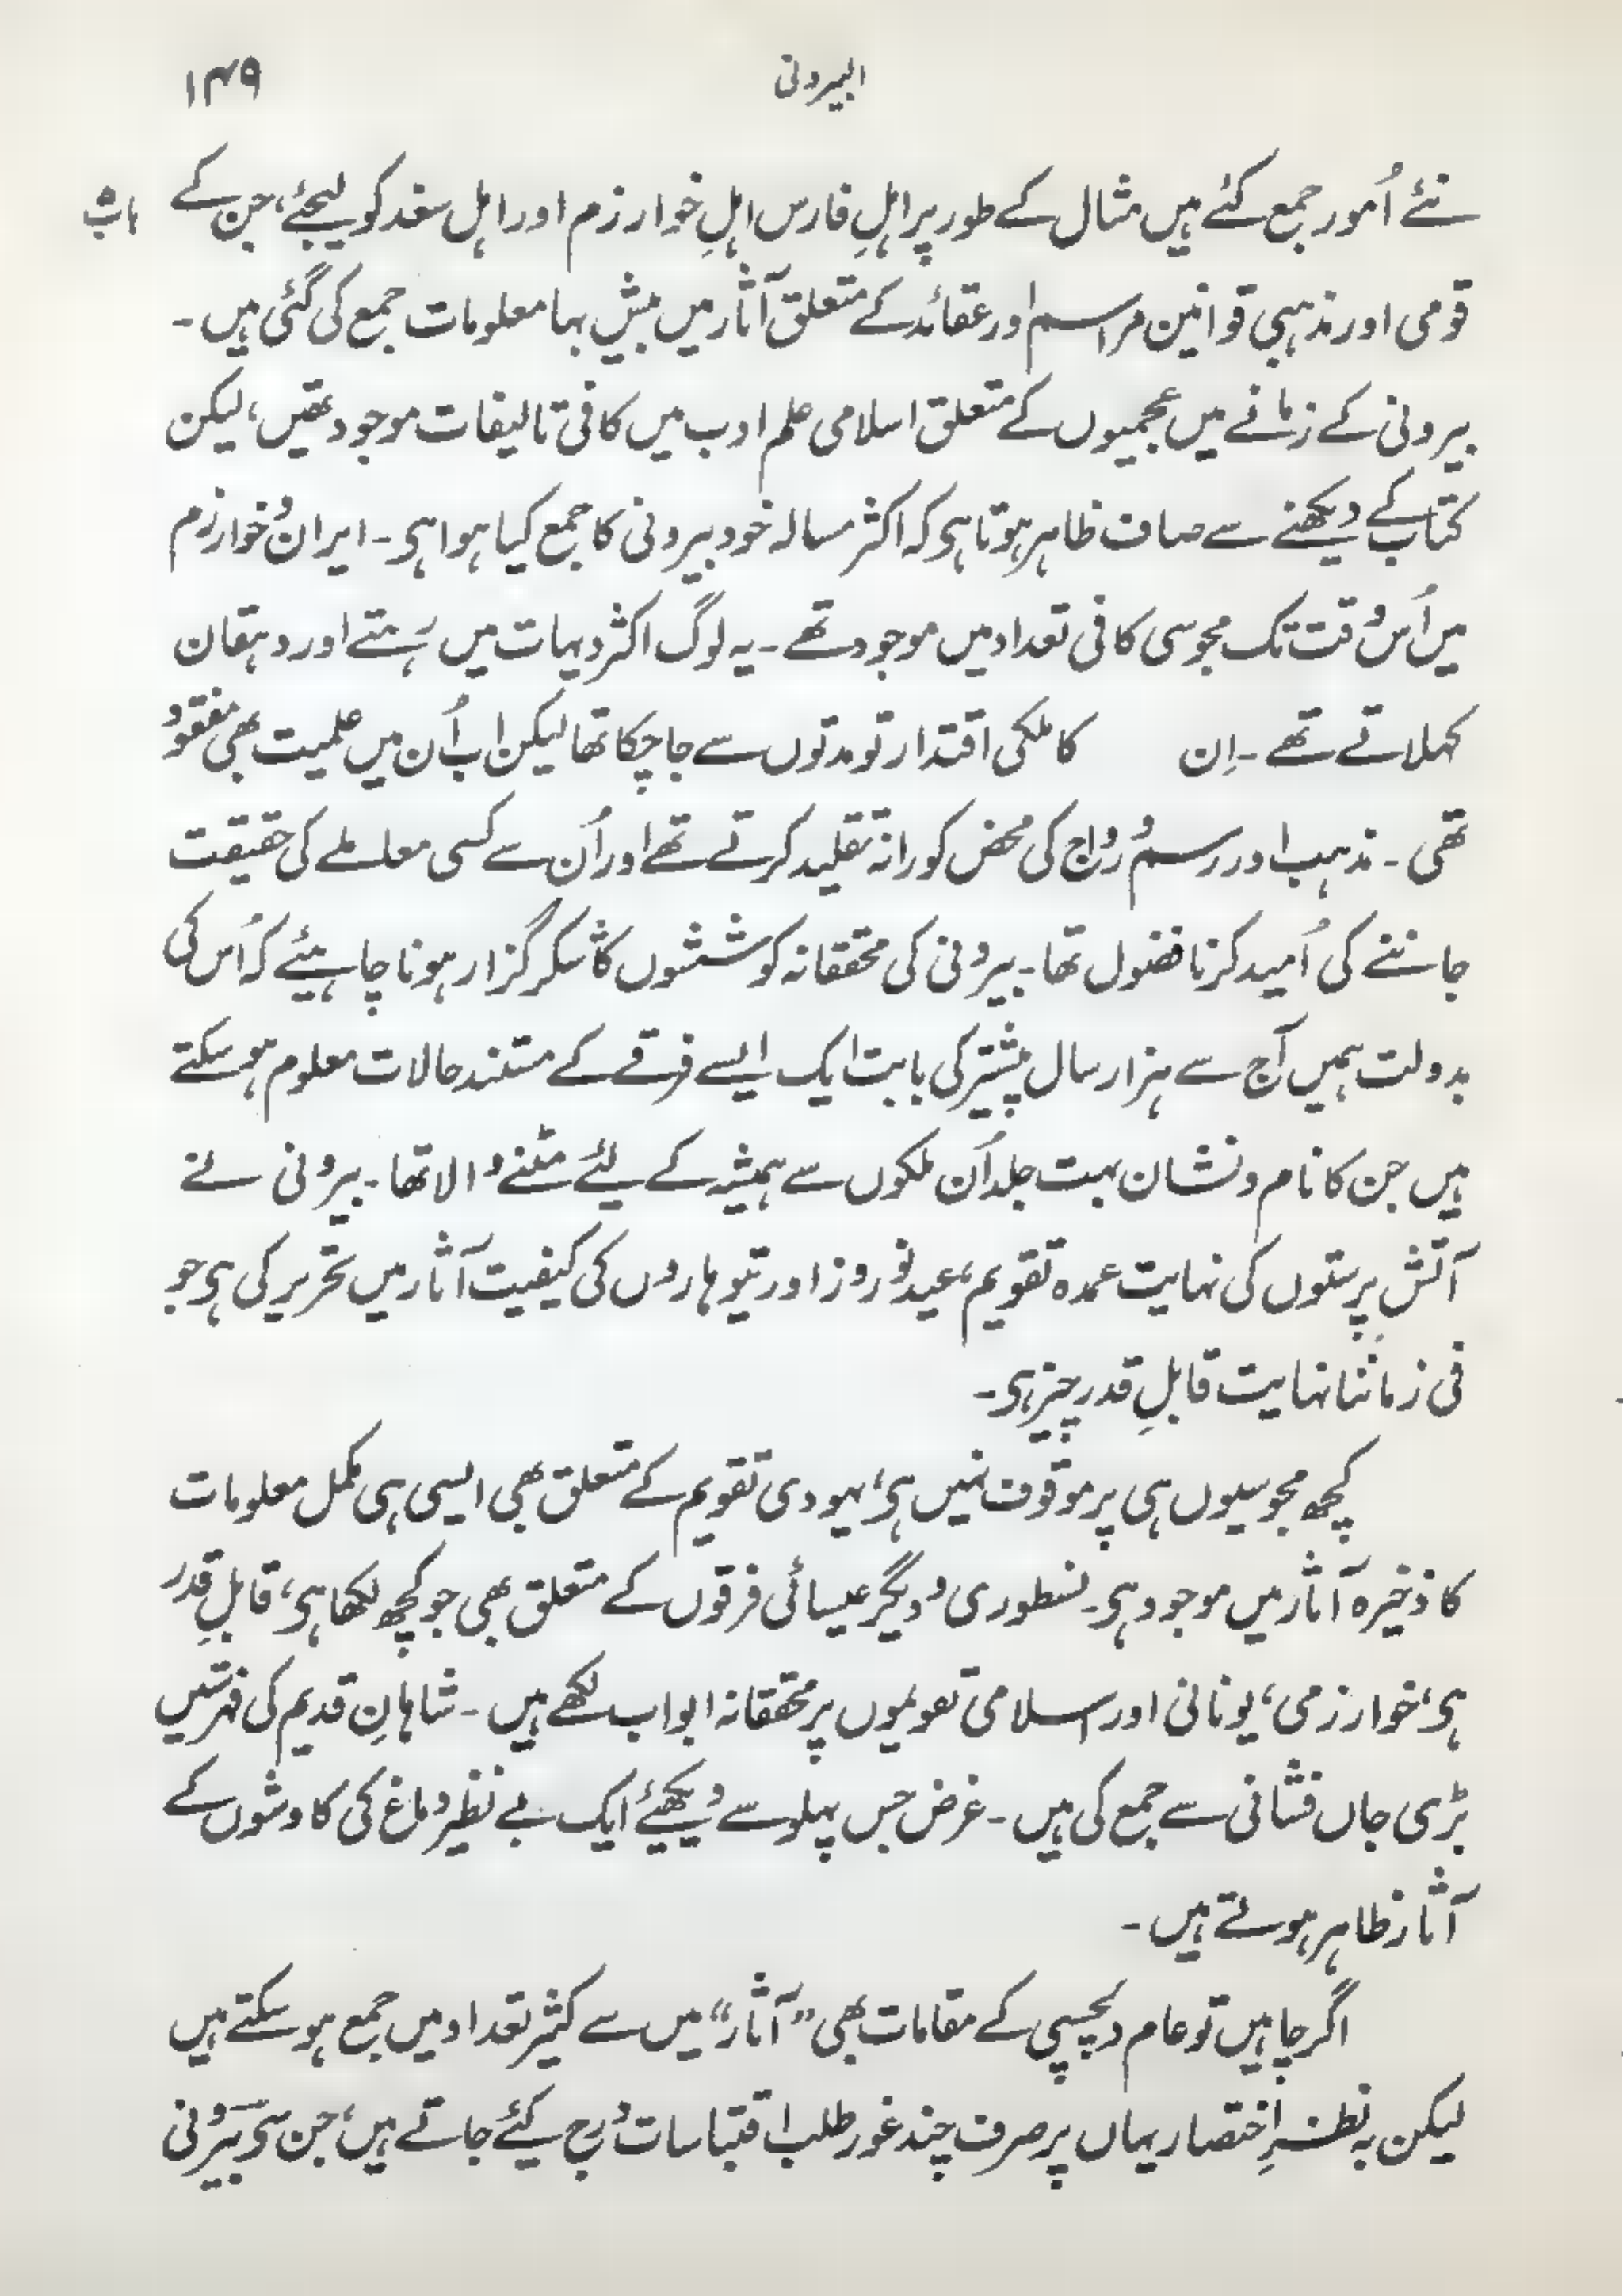 البیرونی ۱۴۹
نئے اُمور جمع کئے ہیں مثال کے طور پر اہلِ فارس اہلِ خوارزم اور اہل سغد کو لیجئے، جن کے
باب ۵
قومی اور مذہبی قوانین مراسم اور عقائد کے متعلق آثار میں بیش بہا معلومات جمع کی گئی ہیں ۔
بیرونی کے زمانے میں عجمیوں کے متعلق اسلامی علم ادب میں کافی تالیفات موجود تھیں، لیکن
کتاب کے دیکھنے سے صاف ظاہر ہوتا ہی کہ اکثر مسالہ خود بیرونی کا جمع کیا ہوا ہی ۔ ایران و خوارزم
میں اُس وقت تک مجوسی کافی تعداد میں موجود تھے ۔ یہ لوگ اکثر دیہات میں رہتے اور دہقان
کہلاتے تھے ۔ اِن کا ملکی اقتدار تو مدتوں سے جا چکا تھا لیکن اب اُن میں علمیت بھی مفقود
تھی ۔ مذہب اور رسم و رواج کی محض کورانہ تقلید کرتے تھے اور اُن سے کسی معاملے کی حقیقت
جاننے کی اُمید کرنا فضول تھا ۔ بیرونی کی محققانہ کوششوں کا شکر گزار ہونا چاہیئے کہ اُس کی
بدولت ہمیں آج سے ہزار سال پیشتر کی بابت ایک ایسے فرقے کے مستند حالات معلوم ہو سکتے
ہیں جن کا نام و نشان بہت جلد اُن ملکوں سے ہمیشہ کے لیئے مٹنے والا تھا ۔ بیرونی نے
آتش پرستوں کی نہایت عمدہ تقویم، عید نوروز اور تیوہاروں کی کیفیت آثار میں تحریر کی ہی جو
فی زماننا نہایت قابلِ قدر چیز ہی ۔
کچھ مجوسیوں ہی پر موقوف نہیں ہی، یہودی تقویم کے متعلق بھی ایسی ہی مکمل معلومات
کا ذخیرہ آثار میں موجود ہی ۔ نسطوری و دیگر عیسائی فرقوں کے متعلق بھی جو کچھ لکھا ہی، قابلِ قدر
ہی، خوارزمی، یونانی اور اسلامی تقویموں پر محققانہ ابواب لکھے ہیں ۔ شاہانِ قدیم کی فہرستیں
بڑی جاں فشانی سے جمع کی ہیں ۔ غرض جس پہلو سے دیکھیئے ایک بے نظیر دماغ کی کاوشوں کے
آثار ظاہر ہوتے ہیں ۔
اگر چاہیں تو عام دلچسپی کے مقامات بھی ”آثار“ میں سے کثیر تعداد میں جمع ہو سکتے ہیں
لیکن بہ نظرِ اختصار یہاں پر صرف چند غور طلب اقتباسات درج کیئے جاتے ہیں، جن سے بیرونی